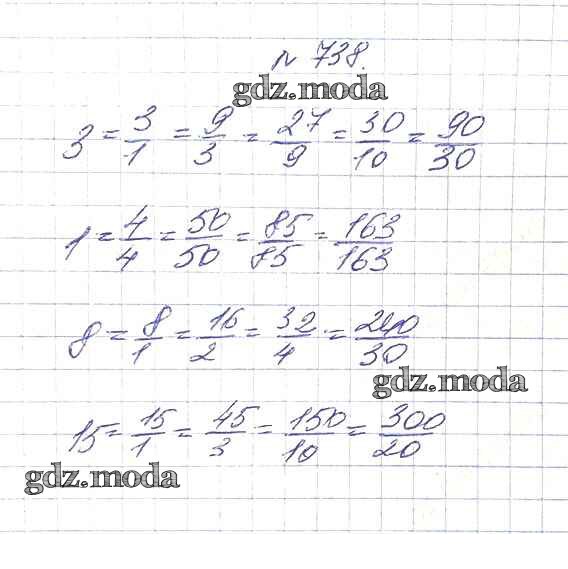 № 738.
gdz.moda
3 = 3/1 = 9/3 = 27/9 = 30/10 = 90/30
1 = 4/4 = 50/50 = 85/85 = 163/163
8 = 8/1 = 16/2 = 32/4 = 240/30
gdz.moda
15 = 15/1 = 45/3 = 150/10 = 300/20
gdz.moda